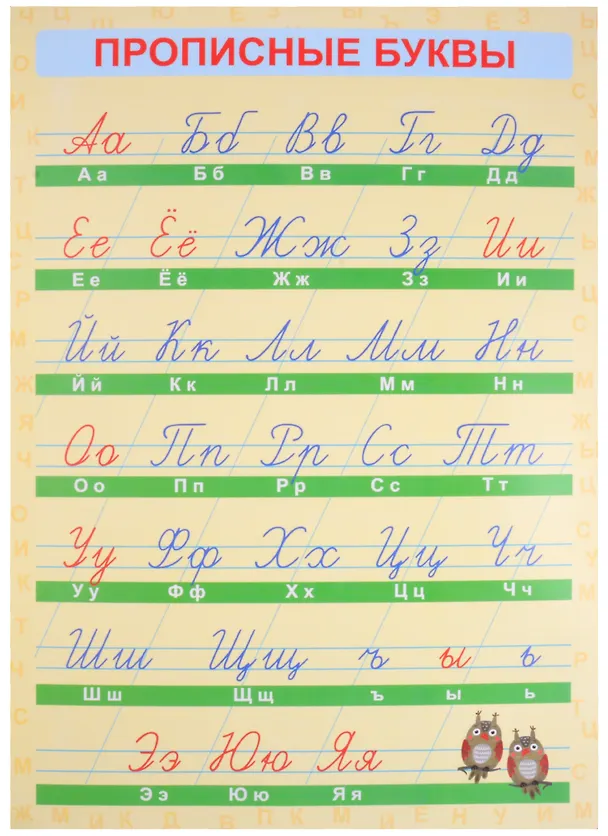 ПРОПИСНЫЕ БУКВЫ
Аа Бб Вв Гг Дд
Аа Бб Вв Гг Дд
Ее Ёё Жж Зз Ии
Ее Ёё Жж Зз Ии
Йй Кк Лл Мм Нн
Йй Кк Лл Мм Нн
Оо Пп Рр Сс Тт
Оо Пп Рр Сс Тт
Уу Фф Хх Цц Чч
Уу Фф Хх Цц Чч
Шш Щщ ъ ы ь
Шш Щщ ъ ы ь
Ээ Юю Яя
Ээ Юю Яя